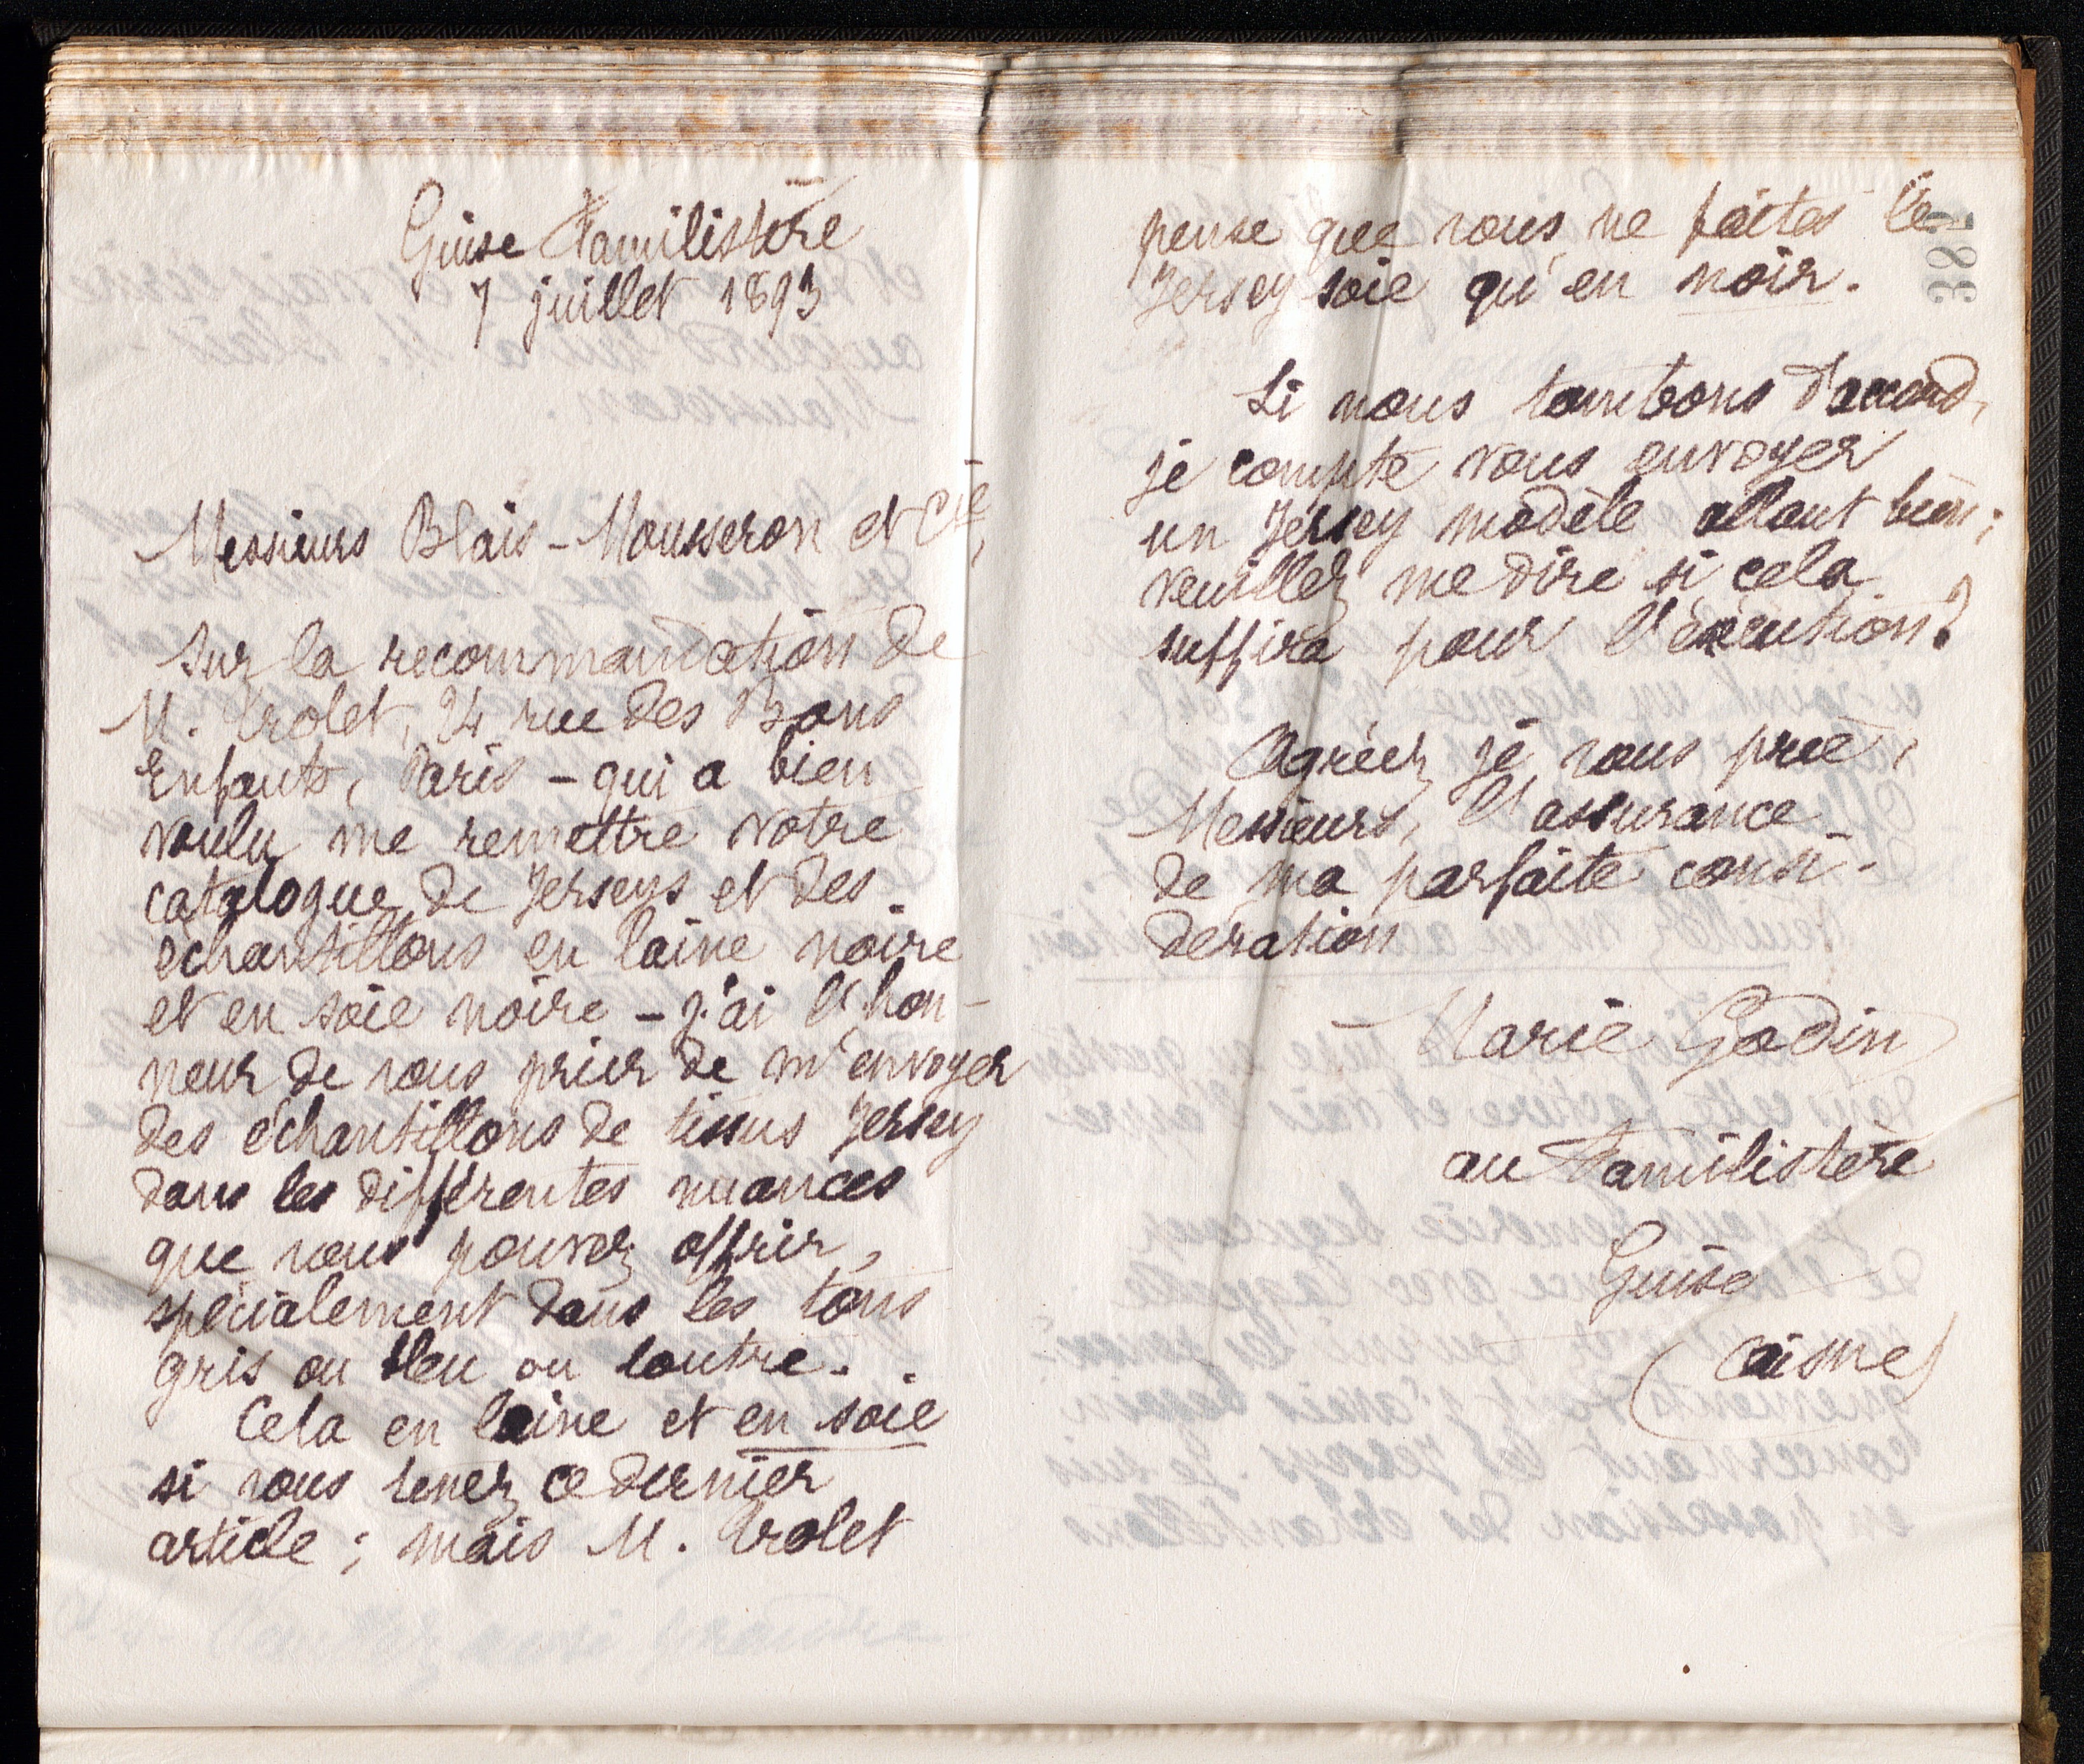 Guise Familistère
7 juillet 1893
Messieurs Blais-Mousseron et Cie,
Sur la recommandation de
M. Trolet, 24 rue des Bons
Enfants, Paris - qui a bien
voulu me remettre votre
catalogue de Jerseys et des
échantillons en laine noire
et en soie noire - j'ai l'hon-
neur de vous prier de m'envoyer
des échantillons de tissus Jersey
dans les différentes nuances
que vous pouvez offrir,
spécialement dans les tons
gris ou bleu ou loutre.
Cela en laine et en soie
si vous tenez ce dernier
article ; mais M. Trolet
382
pense que vous ne faites le
Jersey soie qu'en noir.
Si nous tombons d'accord,
je compte vous envoyer
un Jersey modèle allant bien ;
veuillez me dire si cela
suffira pour l'exécution ?
Agréez, je vous prie,
Messieurs, l'assurance
de ma parfaite consi-
dération
Marie Godin
au Familistère
Guise
(Aisne)